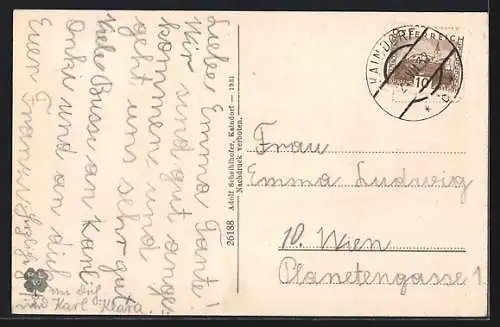 Liebe Emma Tante!
Wir sind gut ange=
kommen und
geht uns sehr gut
Viele Bussi an Karl
Onki und an dich
Euer Franzi
an dich
und Karl Klara.
26188 Adolf Scheiblhofer, Kaindorf — 1931
Nachdruck verboten.
KAINDORF
ÖSTERREICH
10
Frau
Emma Ludwig
10. Wien
Planetengasse 1